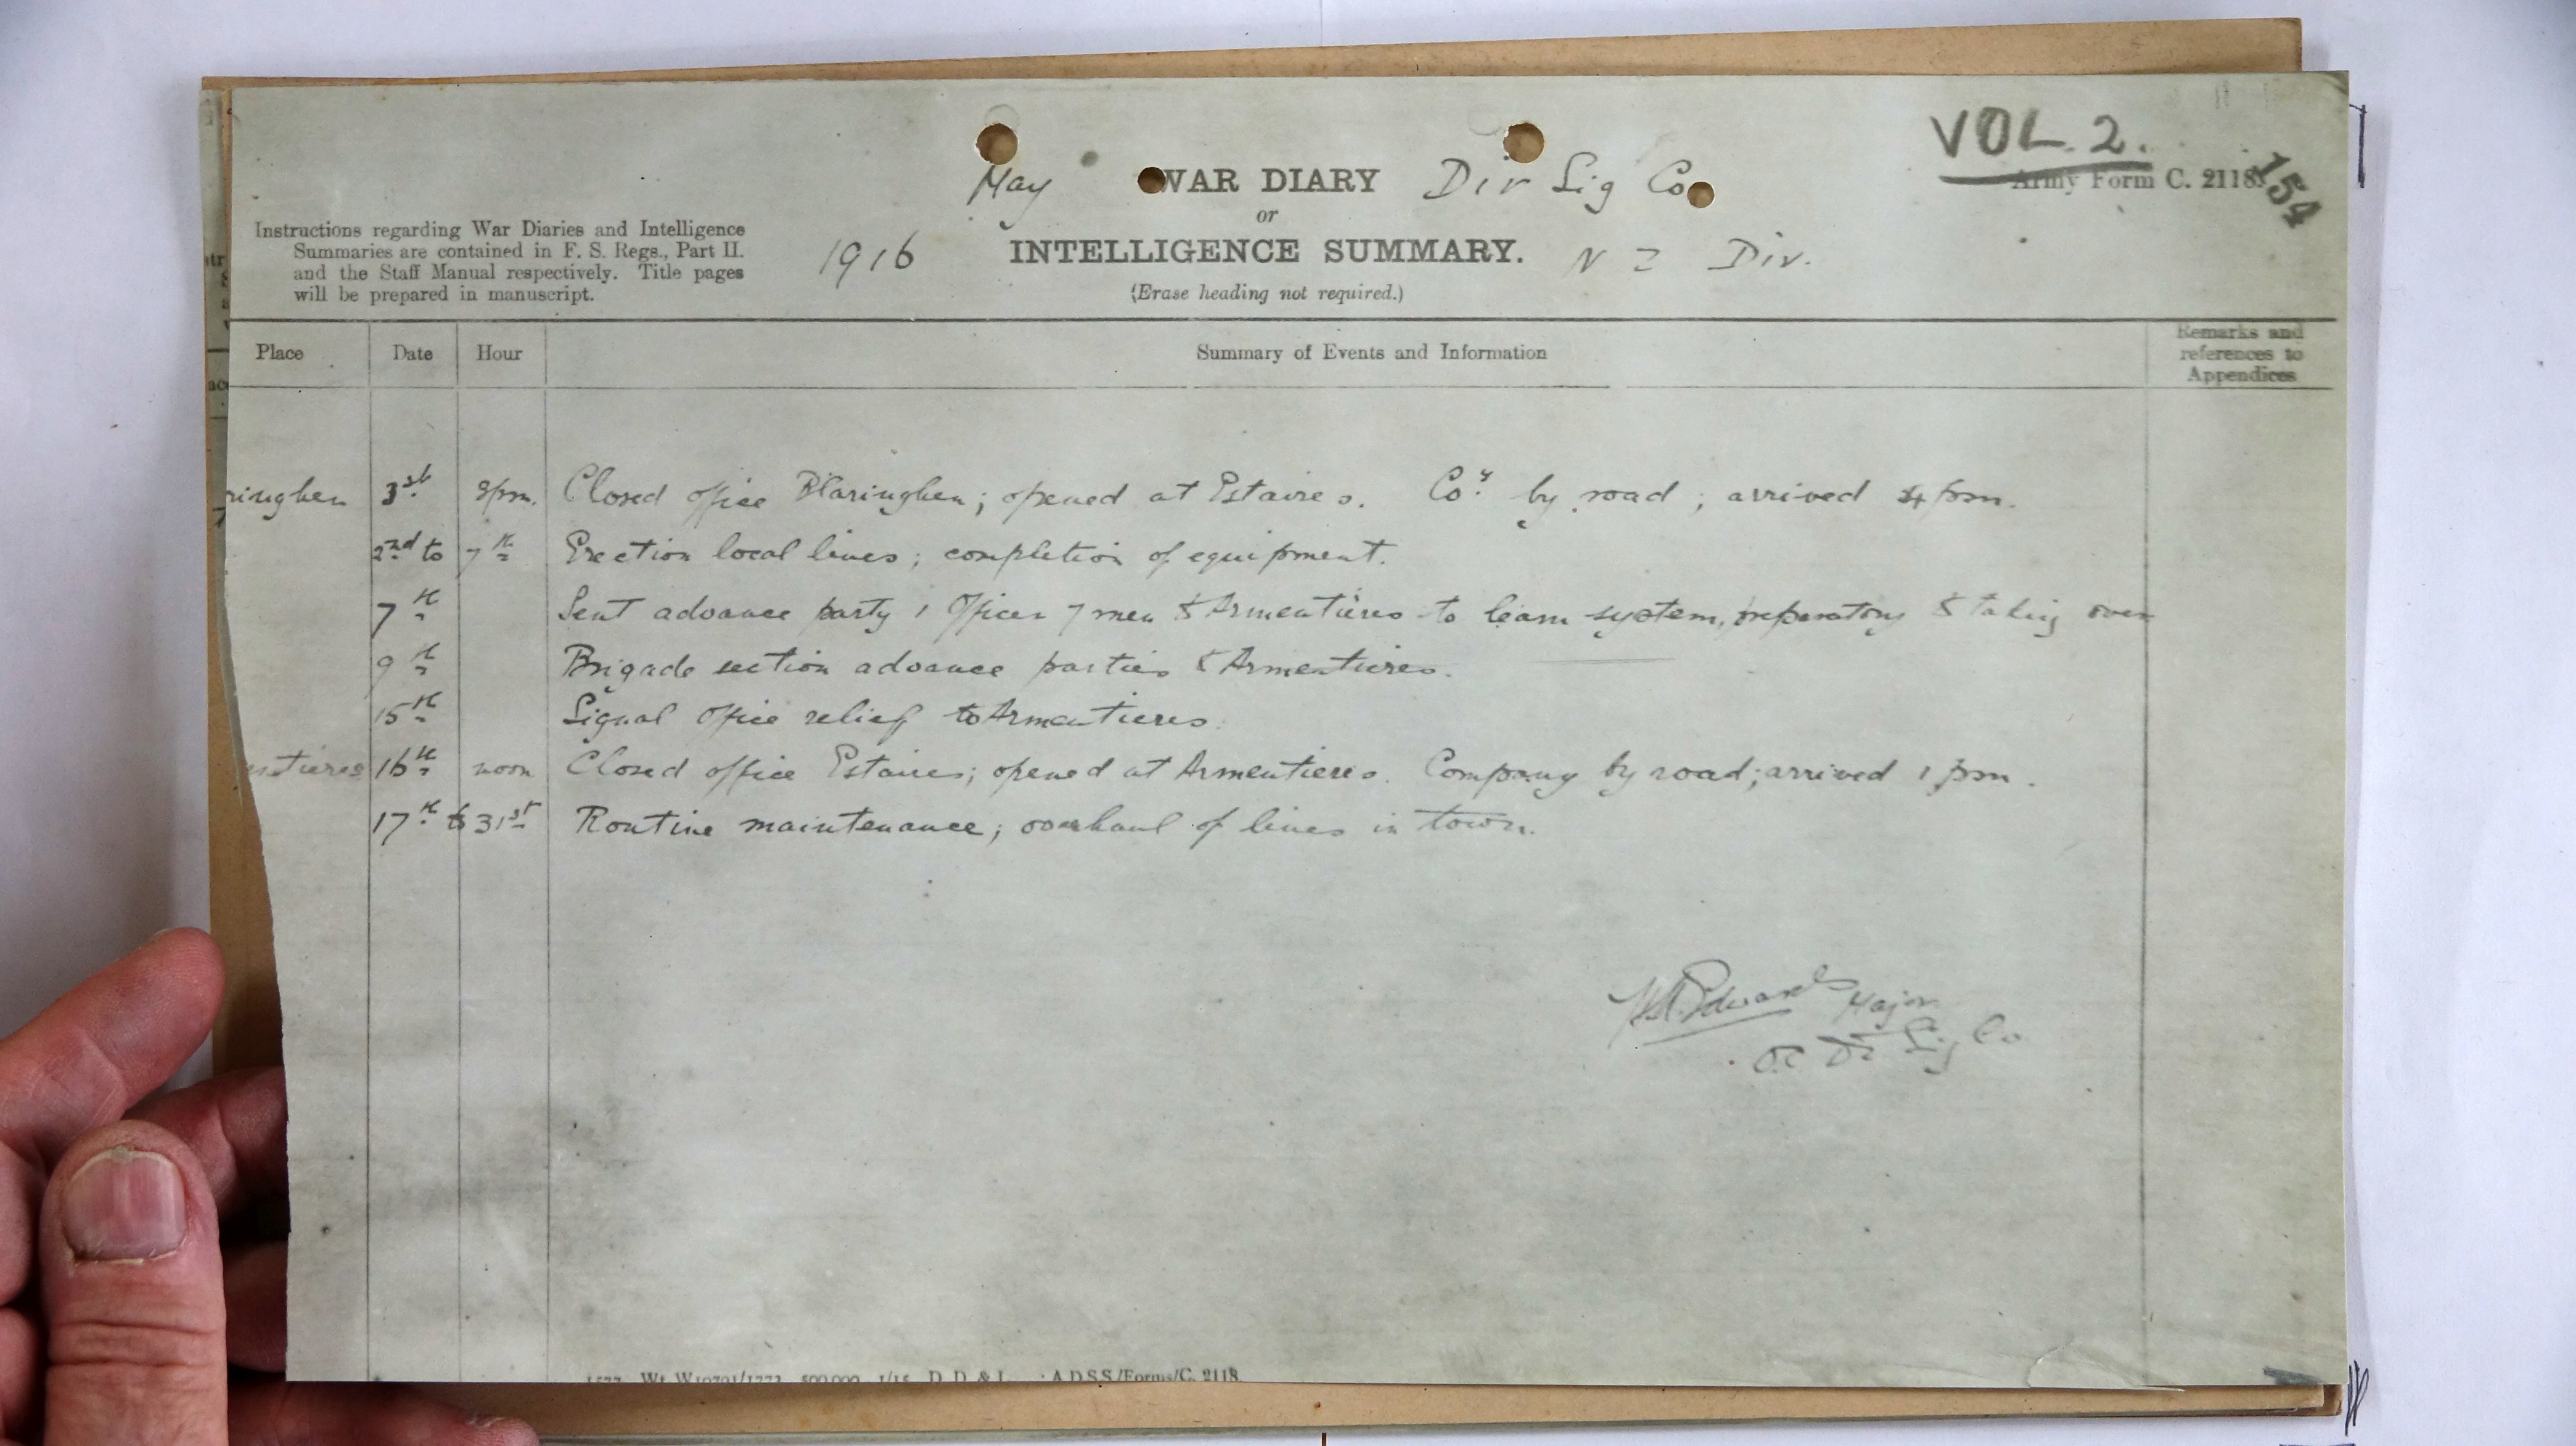 VOL. 2.
154
May WAR DIARY Div Sig Co
Army Form C. 2118.
or
Instructions regarding War Diaries and Intelligence
Summaries are contained in F. S. Regs., Part II.
and the Staff Manual respectively. Title pages
will be prepared in manuscript.
1916 INTELLIGENCE SUMMARY. N Z Div.
(Erase heading not required.)
Place Date Hour Summary of Events and Information Remarks and references to Appendices
ringhen 3st pm. Closed office Blaringhen; opened at Estaires. Coy by road; arrived 4 pm.
2nd to 7th Erection local lines; completion of equipment.
7th Sent advance party 1 Officer 7 men to Armentières to learn system, preparatory to taking over
9th Brigade section advance parties to Armentieres.
15th Signal office relief to Armentieres.
ntieres 16th noon Closed office Estaires; opened at Armentieres. Company by road; arrived 1 pm.
17th to 31st Routine maintenance; overhaul of lines in town.
Edwards Major
OC Div Sig Co
1577 Wt. W10791/1773 500,000 1/15 D. D. & L. A.D.S.S./Forms/C. 2118.